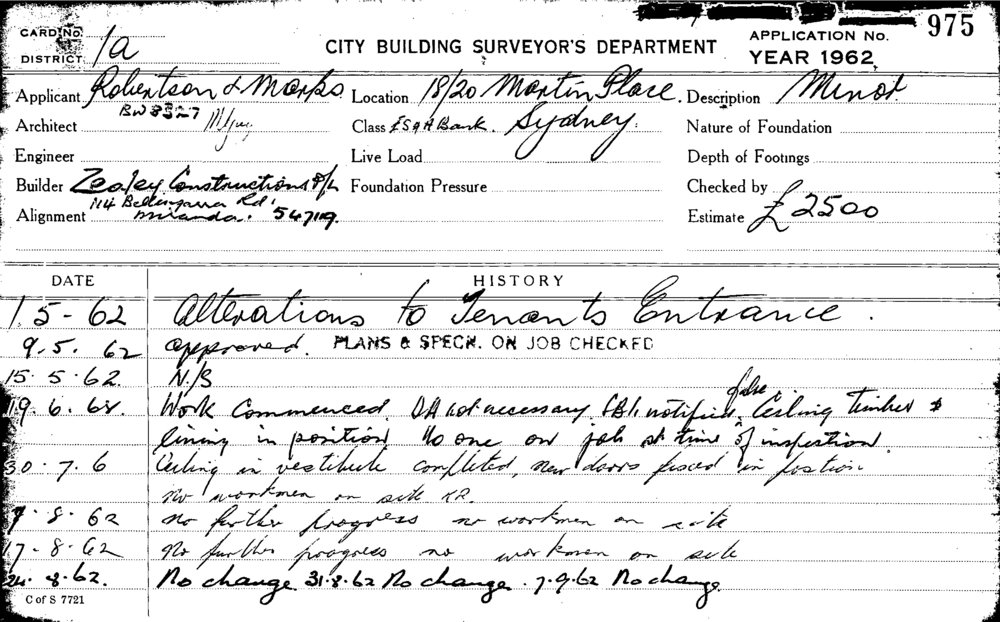 975
CARD NO.
DISTRICT. 1a
CITY BUILDING SURVEYOR'S DEPARTMENT
APPLICATION No.
YEAR 1962
Applicant Robertson & Marks. Location 18/20 Martin Place. Description Minor
BW 8327
Architect Class ES&A Bank. Sydney. Nature of Foundation
Engineer Live Load Depth of Footings
Builder Zealey Constructions P/L Foundation Pressure Checked by
114 Rd.
Alignment Miranda. 54 7119. Estimate £2500
DATE HISTORY
1.5-62 Alterations to Tenants Entrance.
9.5.62 approved. PLANS & SPECN. ON JOB CHECKED
15.5.62. N/S
false
19.6.62. Work Commenced DA not necessary. notified Ceiling timber &
lining in position No one on job at time of inspection.
30.7.6 Ceiling in vestibule completed, new doors fixed in position
no workmen on site
7.8.62 no further progress no workmen on site
17-8.62 No further progress no workmen on site
24.8.62. No change 31.8.62 No change. 7.9.62 No change.
C of S 7721